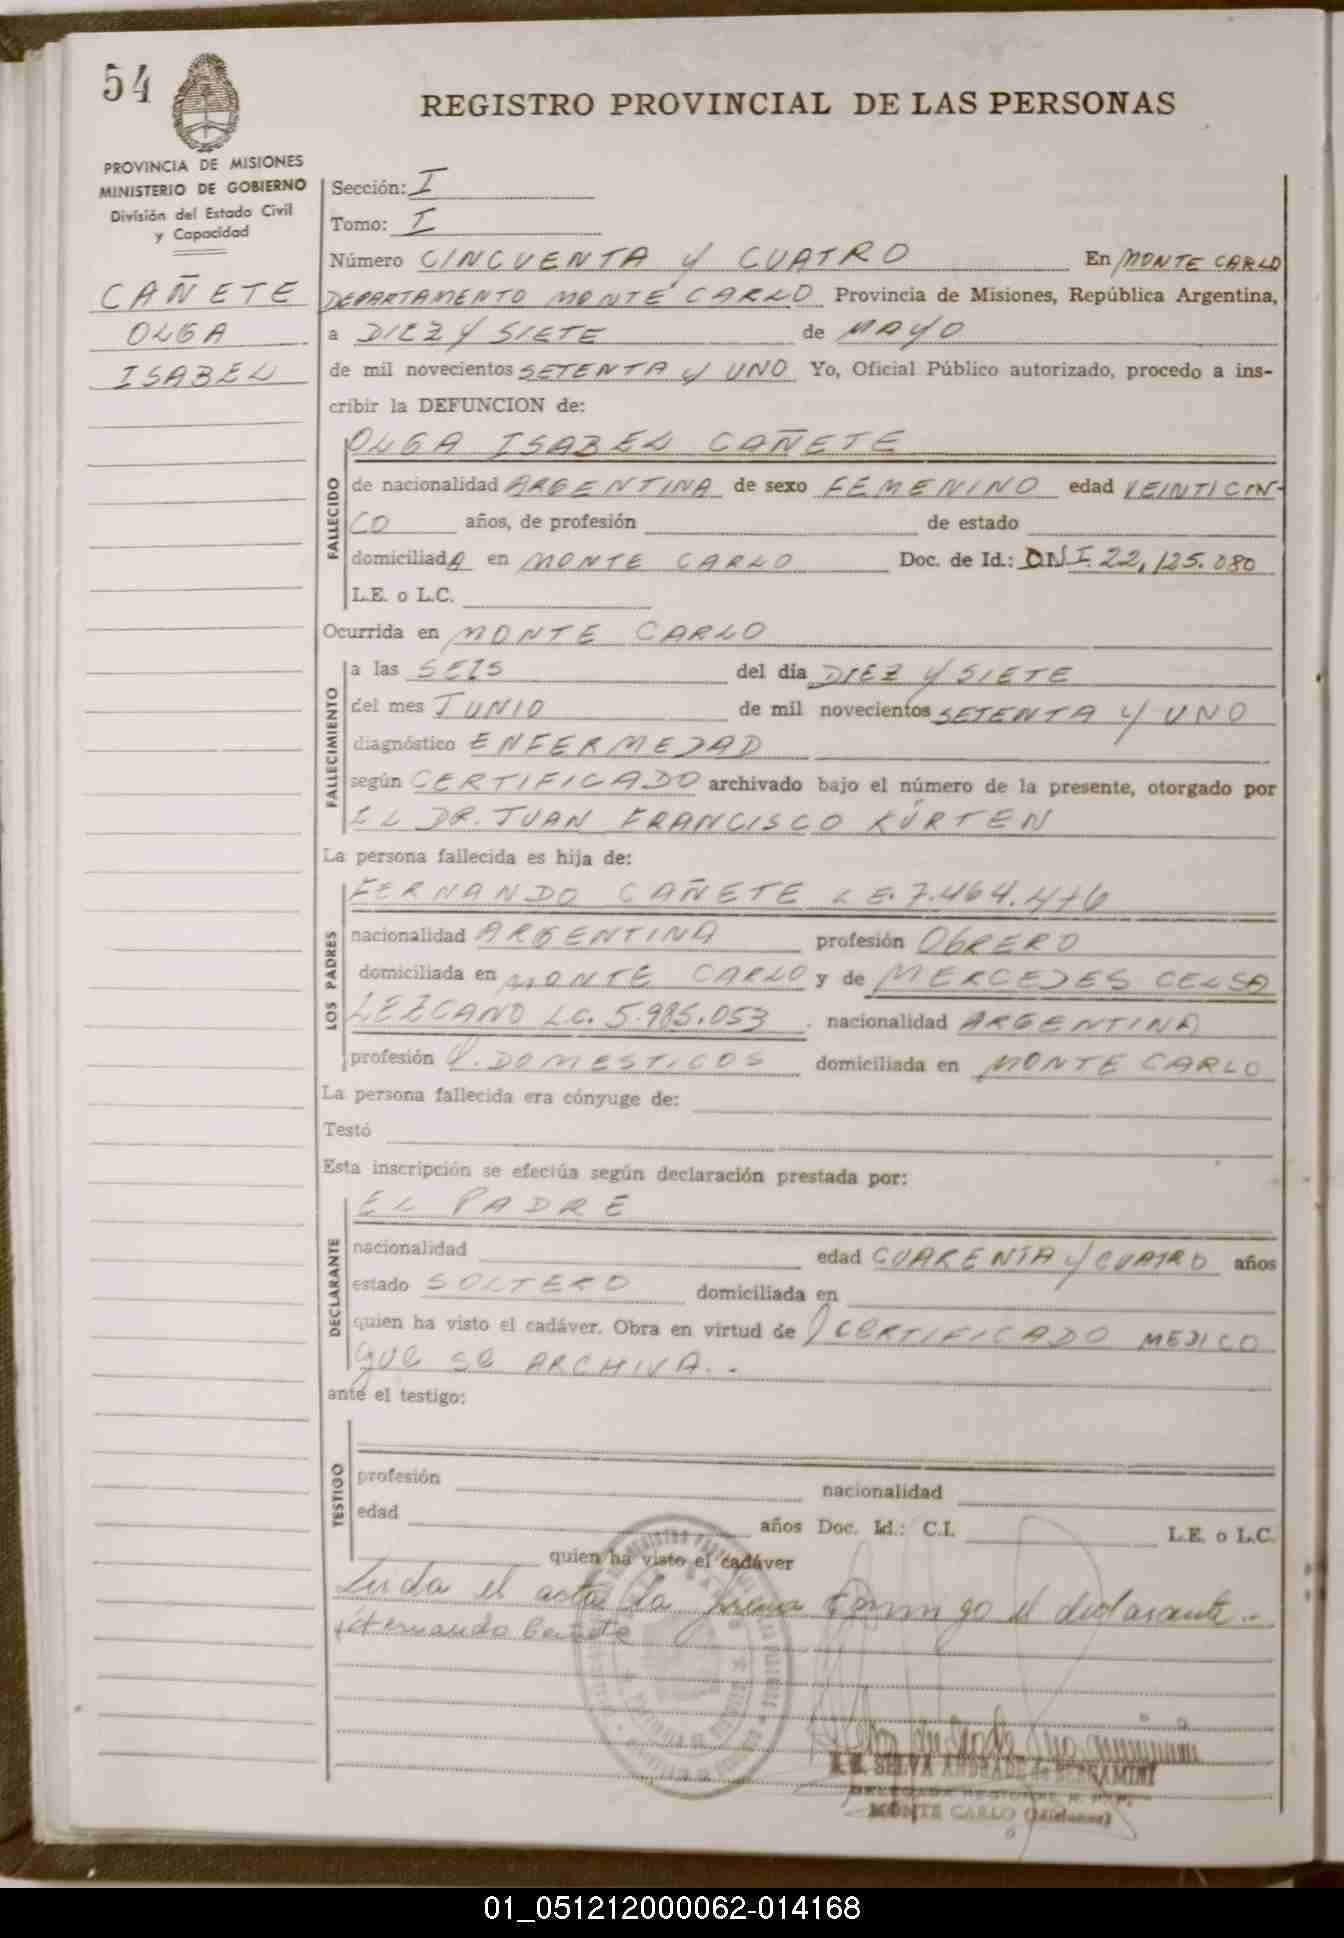 54
REGISTRO PROVINCIAL DE LAS PERSONAS
PROVINCIA DE MISIONES
MINISTERIO DE GOBIERNO
División del Estado Civil
y Capacidad
CAÑETE
OLGA
ISABEL
Sección: I
Tomo: I
Número CINCUENTA y CUATRO En MONTE CARLO
DEPARTAMENTO MONTE CARLO Provincia de Misiones, República Argentina,
a DIEZ Y SIETE de MAYO
de mil novecientos SETENTA y UNO Yo, Oficial Público autorizado, procedo a ins-
cribir la DEFUNCION de:
OLGA ISABEL CAÑETE
FALLECIDO
de nacionalidad ARGENTINA de sexo FEMENINO edad VEINTICIN-
CO años, de profesión de estado
domiciliada en MONTE CARLO Doc. de Id.: DNI. 22,125.080
L.E. o L.C.
Ocurrida en MONTE CARLO
FALLECIMIENTO
a las SEIS del día DIEZ Y SIETE
del mes JUNIO de mil novecientos SETENTA y UNO
diagnóstico ENFERMEDAD
según CERTIFICADO archivado bajo el número de la presente, otorgado por
EL DR. JUAN FRANCISCO KÜRTEN
La persona fallecida es hija de:
LOS PADRES
FERNANDO CAÑETE L E. 7.464.476
nacionalidad ARGENTINA profesión OBRERO
domiciliada en MONTE CARLO y de MERCEDES CELSA
LEZCANO L.C. 5.985.053 nacionalidad ARGENTINA
profesión Q. DOMESTICOS domiciliada en MONTE CARLO
La persona fallecida era cónyuge de:
Testó
Esta inscripción se efectúa según declaración prestada por:
DECLARANTE
EL PADRE
nacionalidad edad CUARENTA y CUATRO años
estado SOLTERO domiciliada en
quien ha visto el cadáver. Obra en virtud de CERTIFICADO MEDICO
que se ARCHIVA..
ante el testigo:
TESTIGO
profesión nacionalidad
edad años Doc. Id.: C.I. L.E. o L.C.
quien ha visto el cadáver
Leida el acta la firma conmigo el declarante..
Fernando Cañete
SELVA ANDRADE de BERGAMINI
MONTE CARLO (Misiones)
01_051212000062-014168